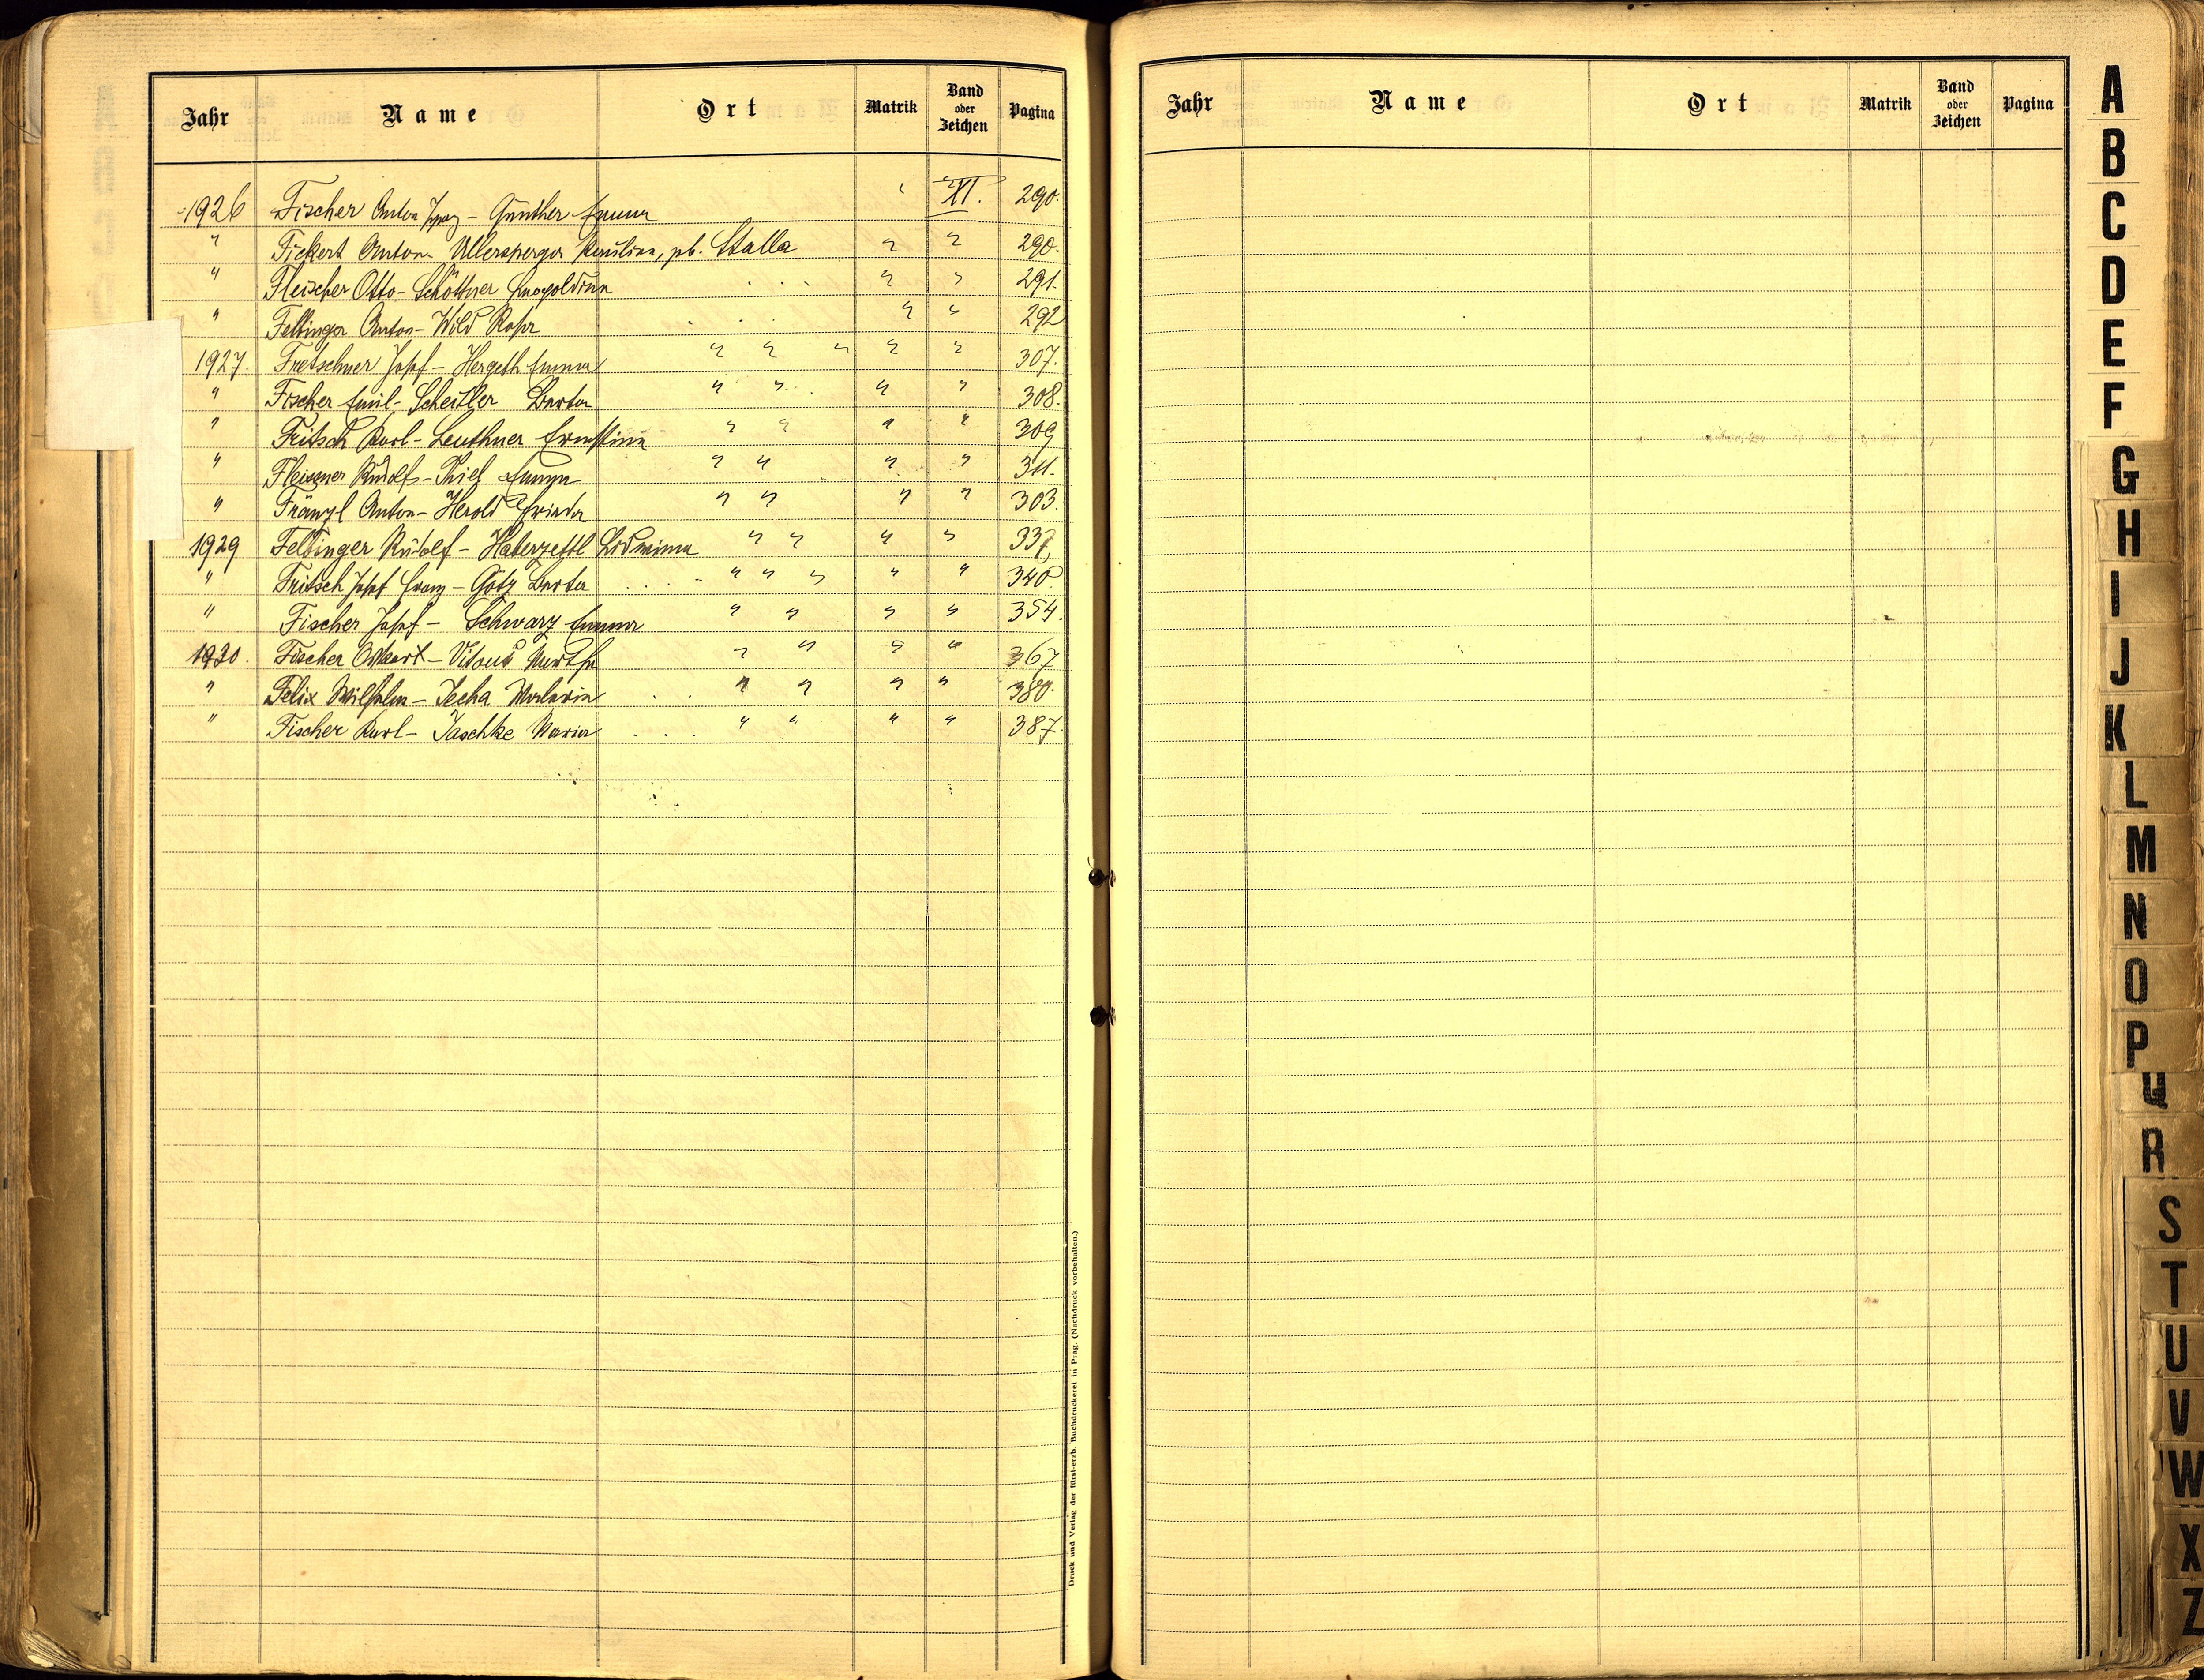 Jahr Name Ort Matrik Band oder Zeichen Pagina
1926 Fischer Anton Josef – Günther Emma " XI. 290.
" Fickert Anton – Ullersperger Emilian, pb. Stalla " " 290.
" Fleischer Otto – Schöttner Leopoldina " " 291.
" Feltinger Anton – Wild Rosa " " 292
1927. Fretschner Josef – Hergeth Emma " " " " " 307.
" Fischer Emil – Scheitler Berta " " " " 308.
" Fritsch Karl – Leuthner Ernestina " " " " 309
" Fleissner Rudolf – Thiel Emma " " " " 311.
" Fränzl Anton – Herold Frieda " " " " 303.
1929 Feltinger Rudolf – Haberzettl Ludmina " " " " 337,
" Fritsch Josef Franz – Götz Berta " " " " " 340.
" Fischer Josef – Schwarz Emma " " " " 354.
1930. Fischer Oskar – Vitous Martha " " " " 367
" Felix Wilhelm – Secha " " " " 380.
" Fischer Karl – Jaschke Maria " " " " 387.
Druck und Verlag der fürst-erzb. Buchdruckerei in Prag. (Nachdruck vorbehalten.)
Jahr Name Ort Matrik Band oder Zeichen Pagina
A
B
C
D
E
F
G
H
I
J
K
L
M
N
O
P
Q
R
S
T
U
V
W
X
Z